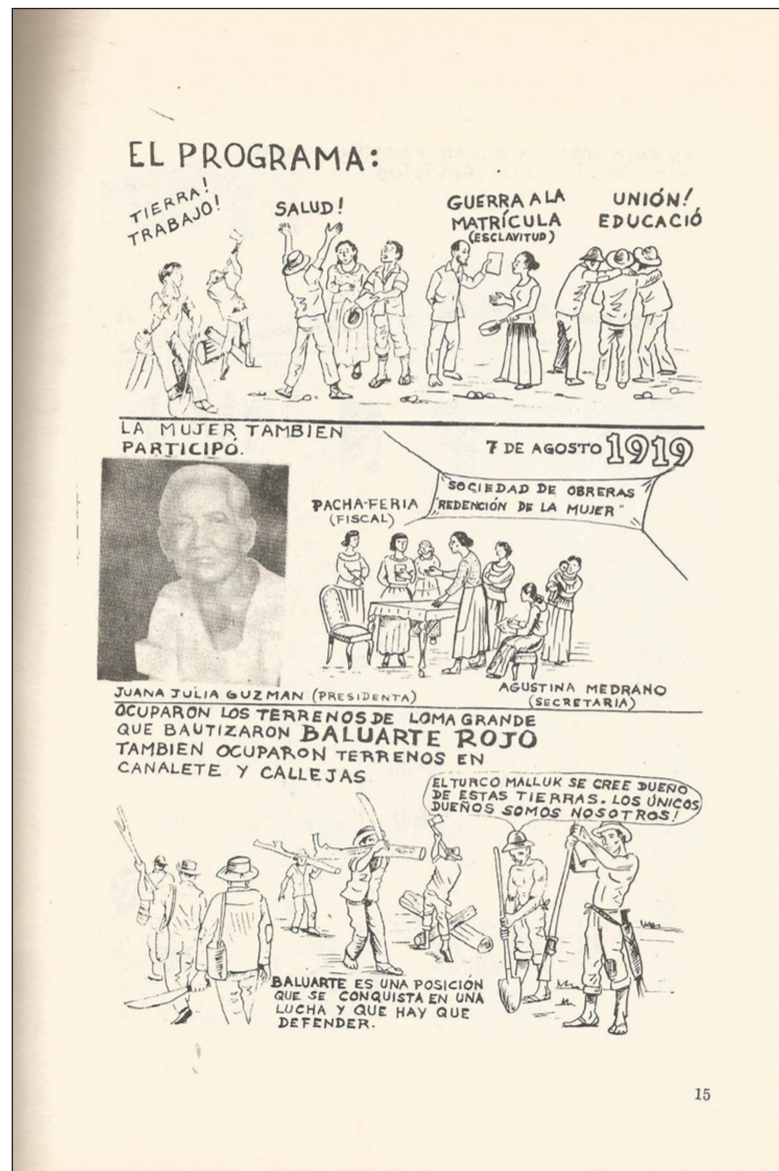 EL PROGRAMA:
TIERRA!
TRABAJO!
SALUD!
GUERRA A LA
MATRÍCULA
(ESCLAVITUD)
UNIÓN!
EDUCACIÓ
LA MUJER TAMBIEN
PARTICIPÓ.
7 DE AGOSTO 1919
SOCIEDAD DE OBRERAS
"REDENCIÓN DE LA MUJER"
PACHA-FERIA
(FISCAL)
JUANA JULIA GUZMAN (PRESIDENTA)
AGUSTINA MEDRANO
(SECRETARIA)
OCUPARON LOS TERRENOS DE LOMA GRANDE
QUE BAUTIZARON BALUARTE ROJO
TAMBIEN OCUPARON TERRENOS EN
CANALETE Y CALLEJAS
EL TURCO MALLUK SE CREE DUEÑO
DE ESTAS TIERRAS. LOS ÚNICOS
DUEÑOS SOMOS NOSOTROS!
BALUARTE ES UNA POSICIÓN
QUE SE CONQUISTA EN UNA
LUCHA Y QUE HAY QUE
DEFENDER.
15